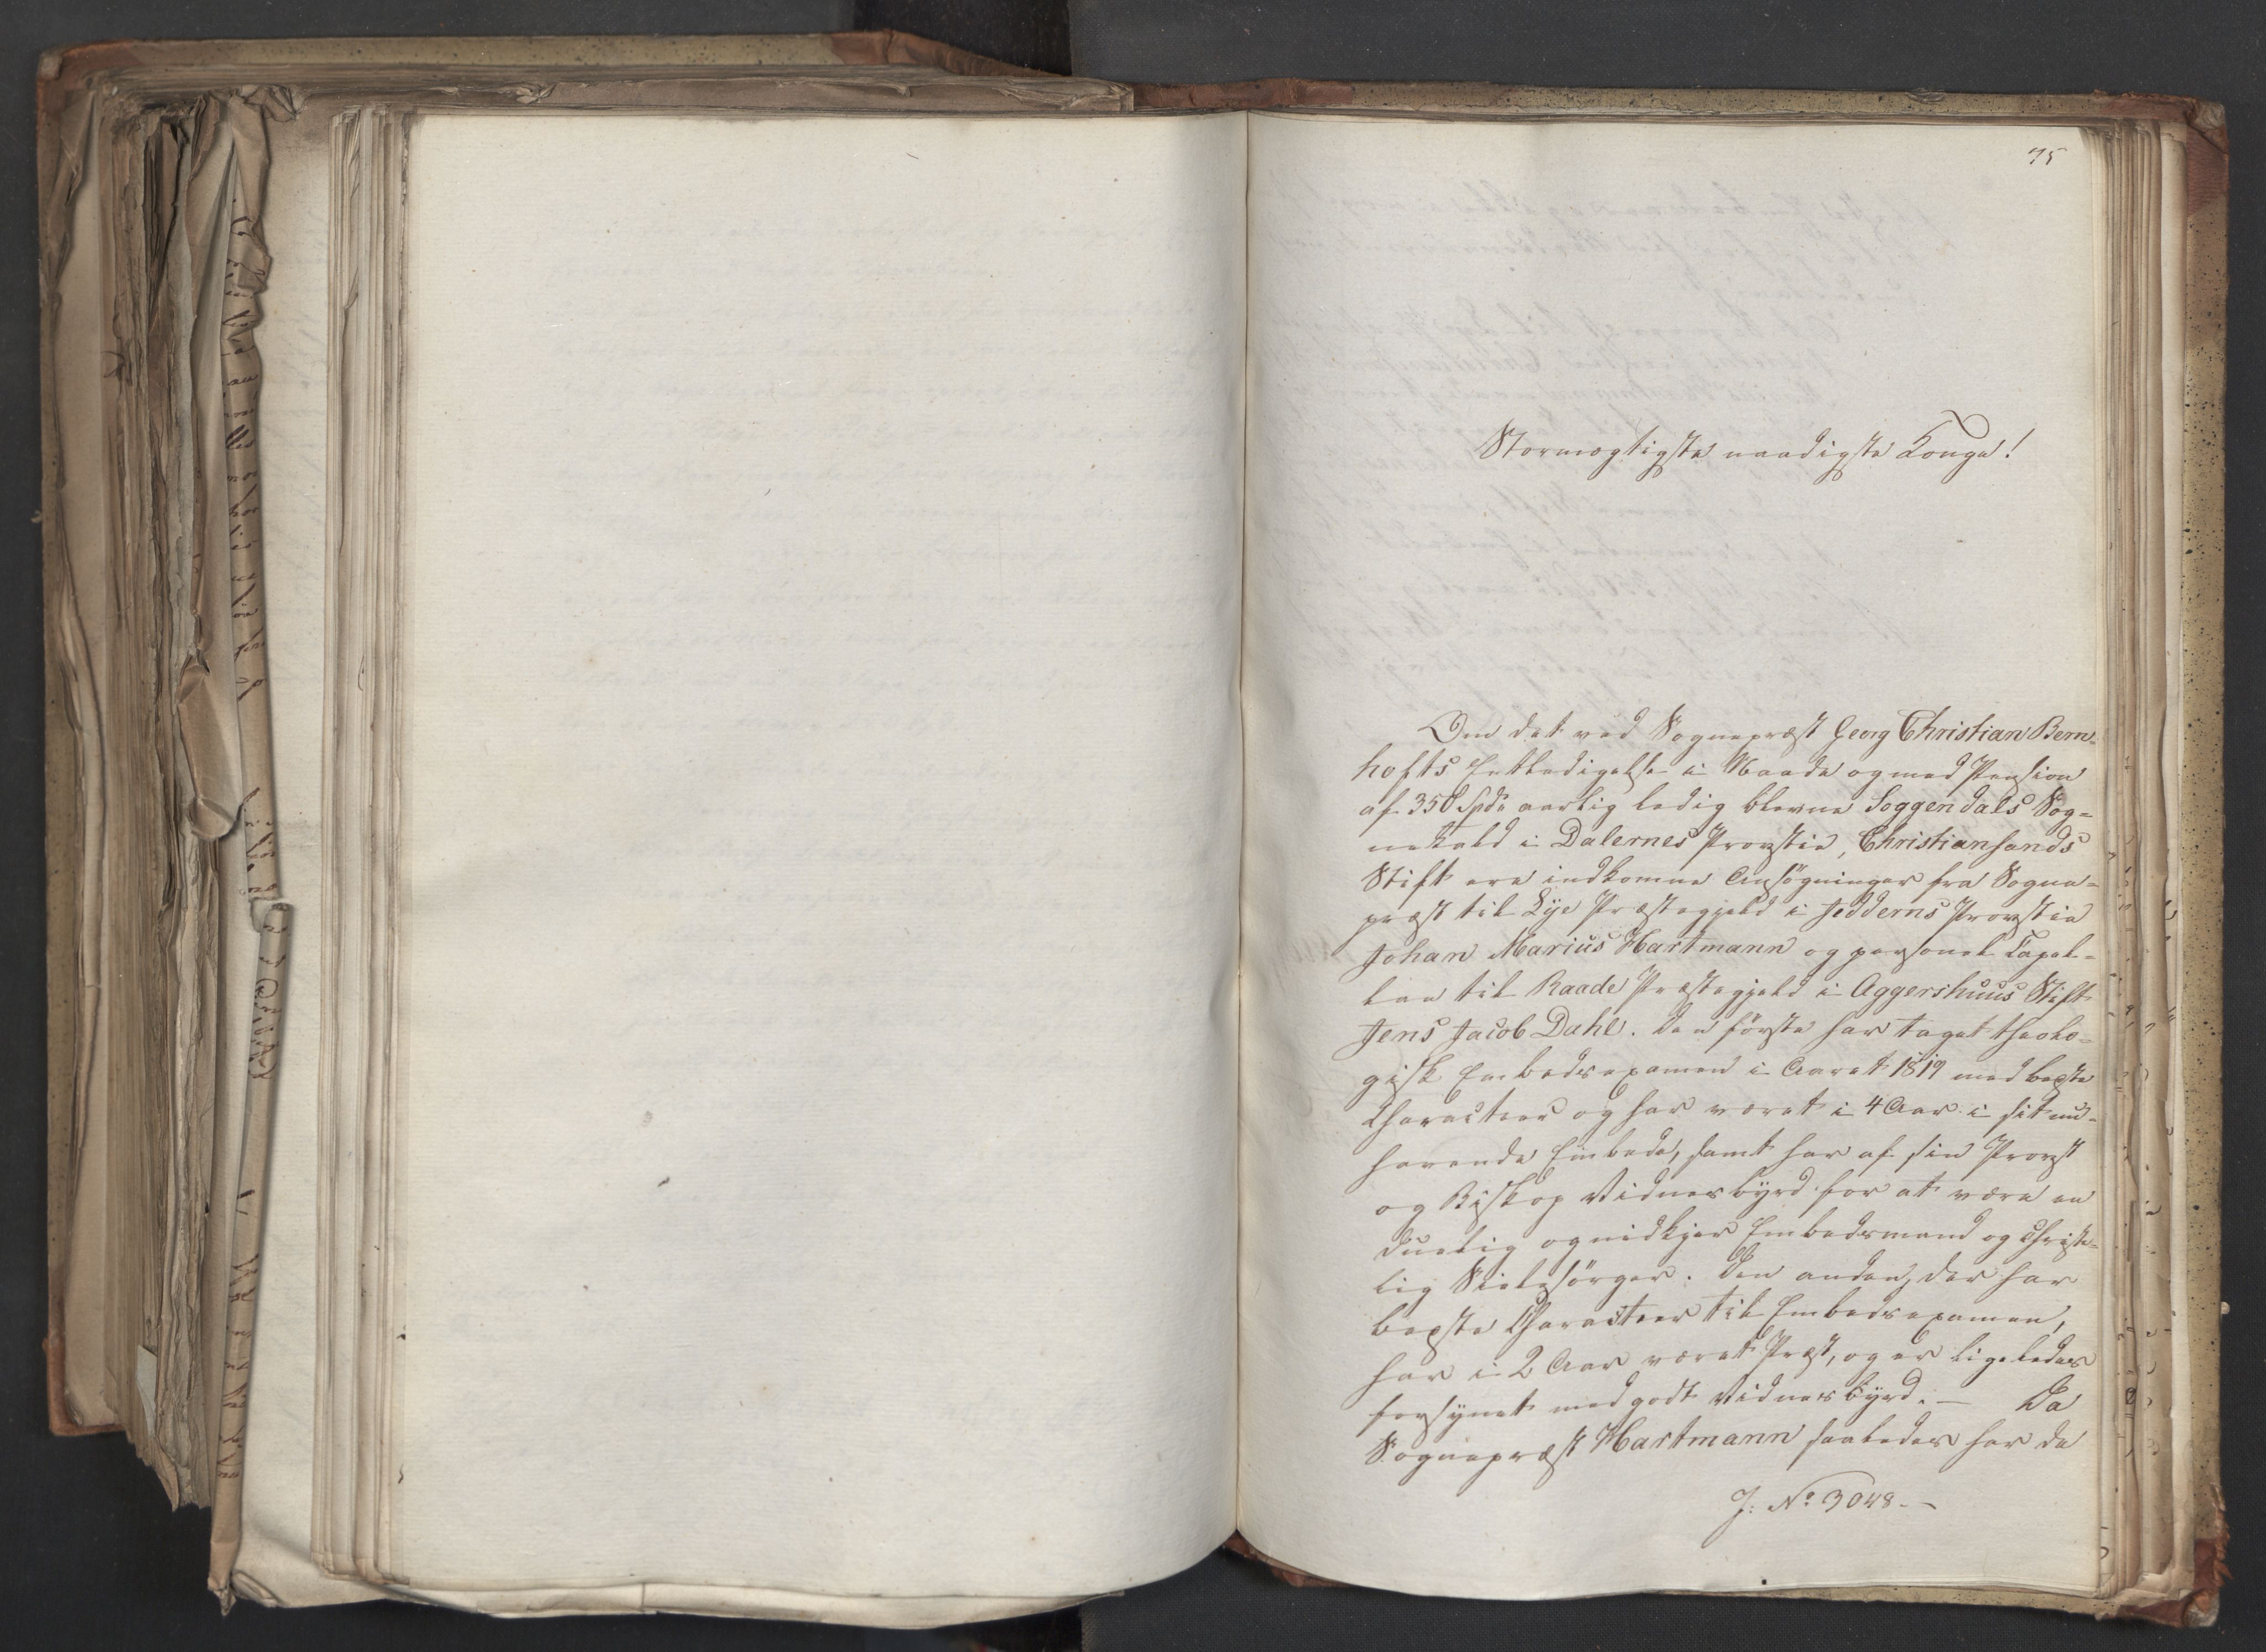 75
Stormægtigste naadigste Konge!
Om det ved Sognepræst Georg Christian Bern-
hofts Entledigelse i Naade og med Pension
af 350 Spd. aarlig ledig blevne Soggendals Sog-
nekald i Dalernes Provstie, Christiansands
Stift ere indkomne Ansøgninger fra Sogne-
præst til Lye Præstegjeld i Jedderns Provstie
Johan Marius Hartmann og personel Capel-
lan til Raade Præstegjeld i Aggershuus Stift
Jens Jacob Dahl. Den første har taget theolo-
gisk Embedsexamen i Aaret 1819 med bedste
Character og har været i 4 Aar i sit nu-
havende Embede, samt har af sin Provst
og Biskop Vidnesbyrd for at være en
duelig og nidkjer Embedsmand og christe-
lig Sielesørger. Den anden, der har
bedste Character til Embedsexamen,
har i 2 Aar været Præst, og er ligeledes
forsynet med godt Vidnesbyrd. — Da
Sognepræst Hartmann saaledes har de
J: No 3048. -